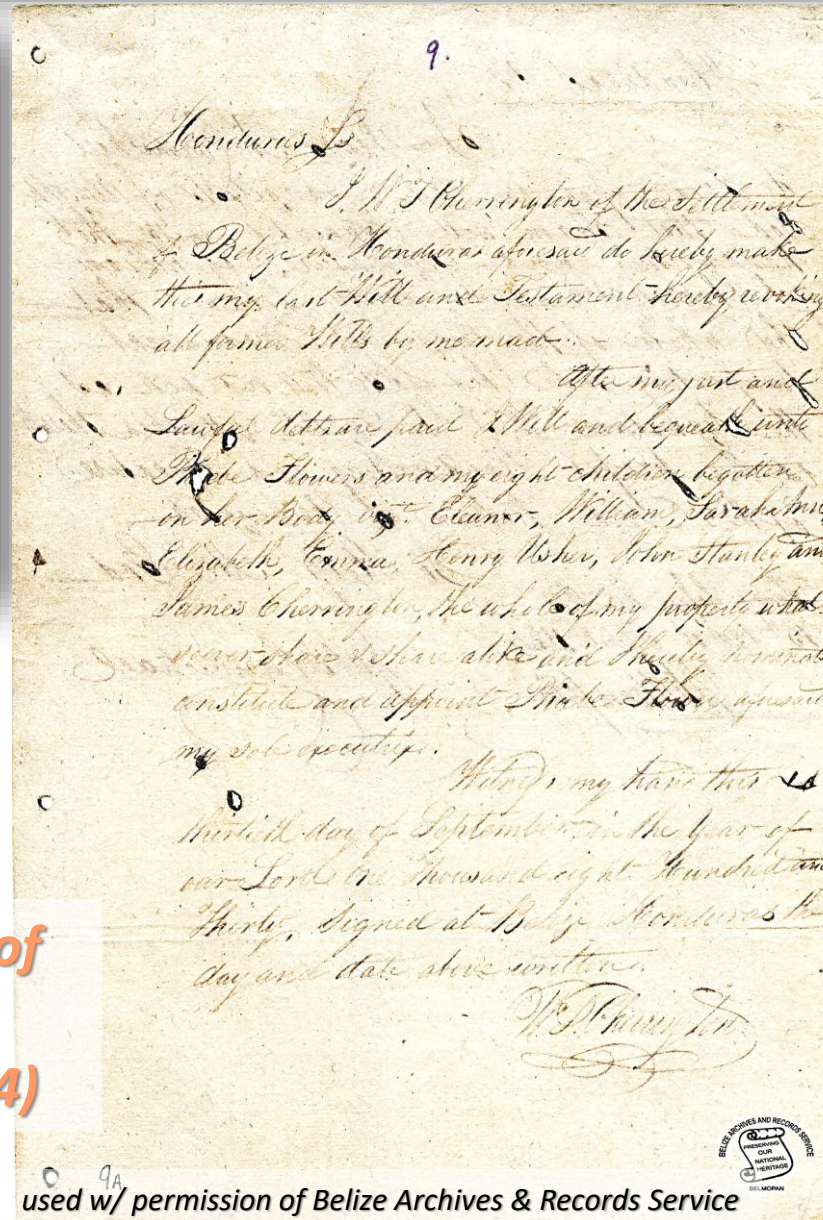 9.
Honduras Ss
I, W T Cherrington of the Settlement
of Belize in Honduras aforesaid do hereby make
this my last Will and Testament hereby revoking
all former Wills by me made.
After my just and
Lawful debts are paid I Will and bequeath unto
Phebe Flowers and my eight children begotten
on her Body vizt. Eleanor, William, Sarah Ann,
Elizabeth, Emma, Henry Usher, John Stanley an
James Cherrington, the whole of my property what
soever share & share alike and I hereby nominat
constitute and appoint Phebe Flowers aforesaid
my sole executrix.
Witness my hand this
thirtieth day of September in the Year of
our Lord One thousand eight Hundred and
Thirty, Signed at Belize Honduras the
day and date above written.
W. T. Cherrington
of
4)
9A
BELIZE ARCHIVES AND RECORDS SERVICE
PRESERVING
OUR
NATIONAL
HERITAGE
BELMOPAN
used w/ permission of Belize Archives & Records Service